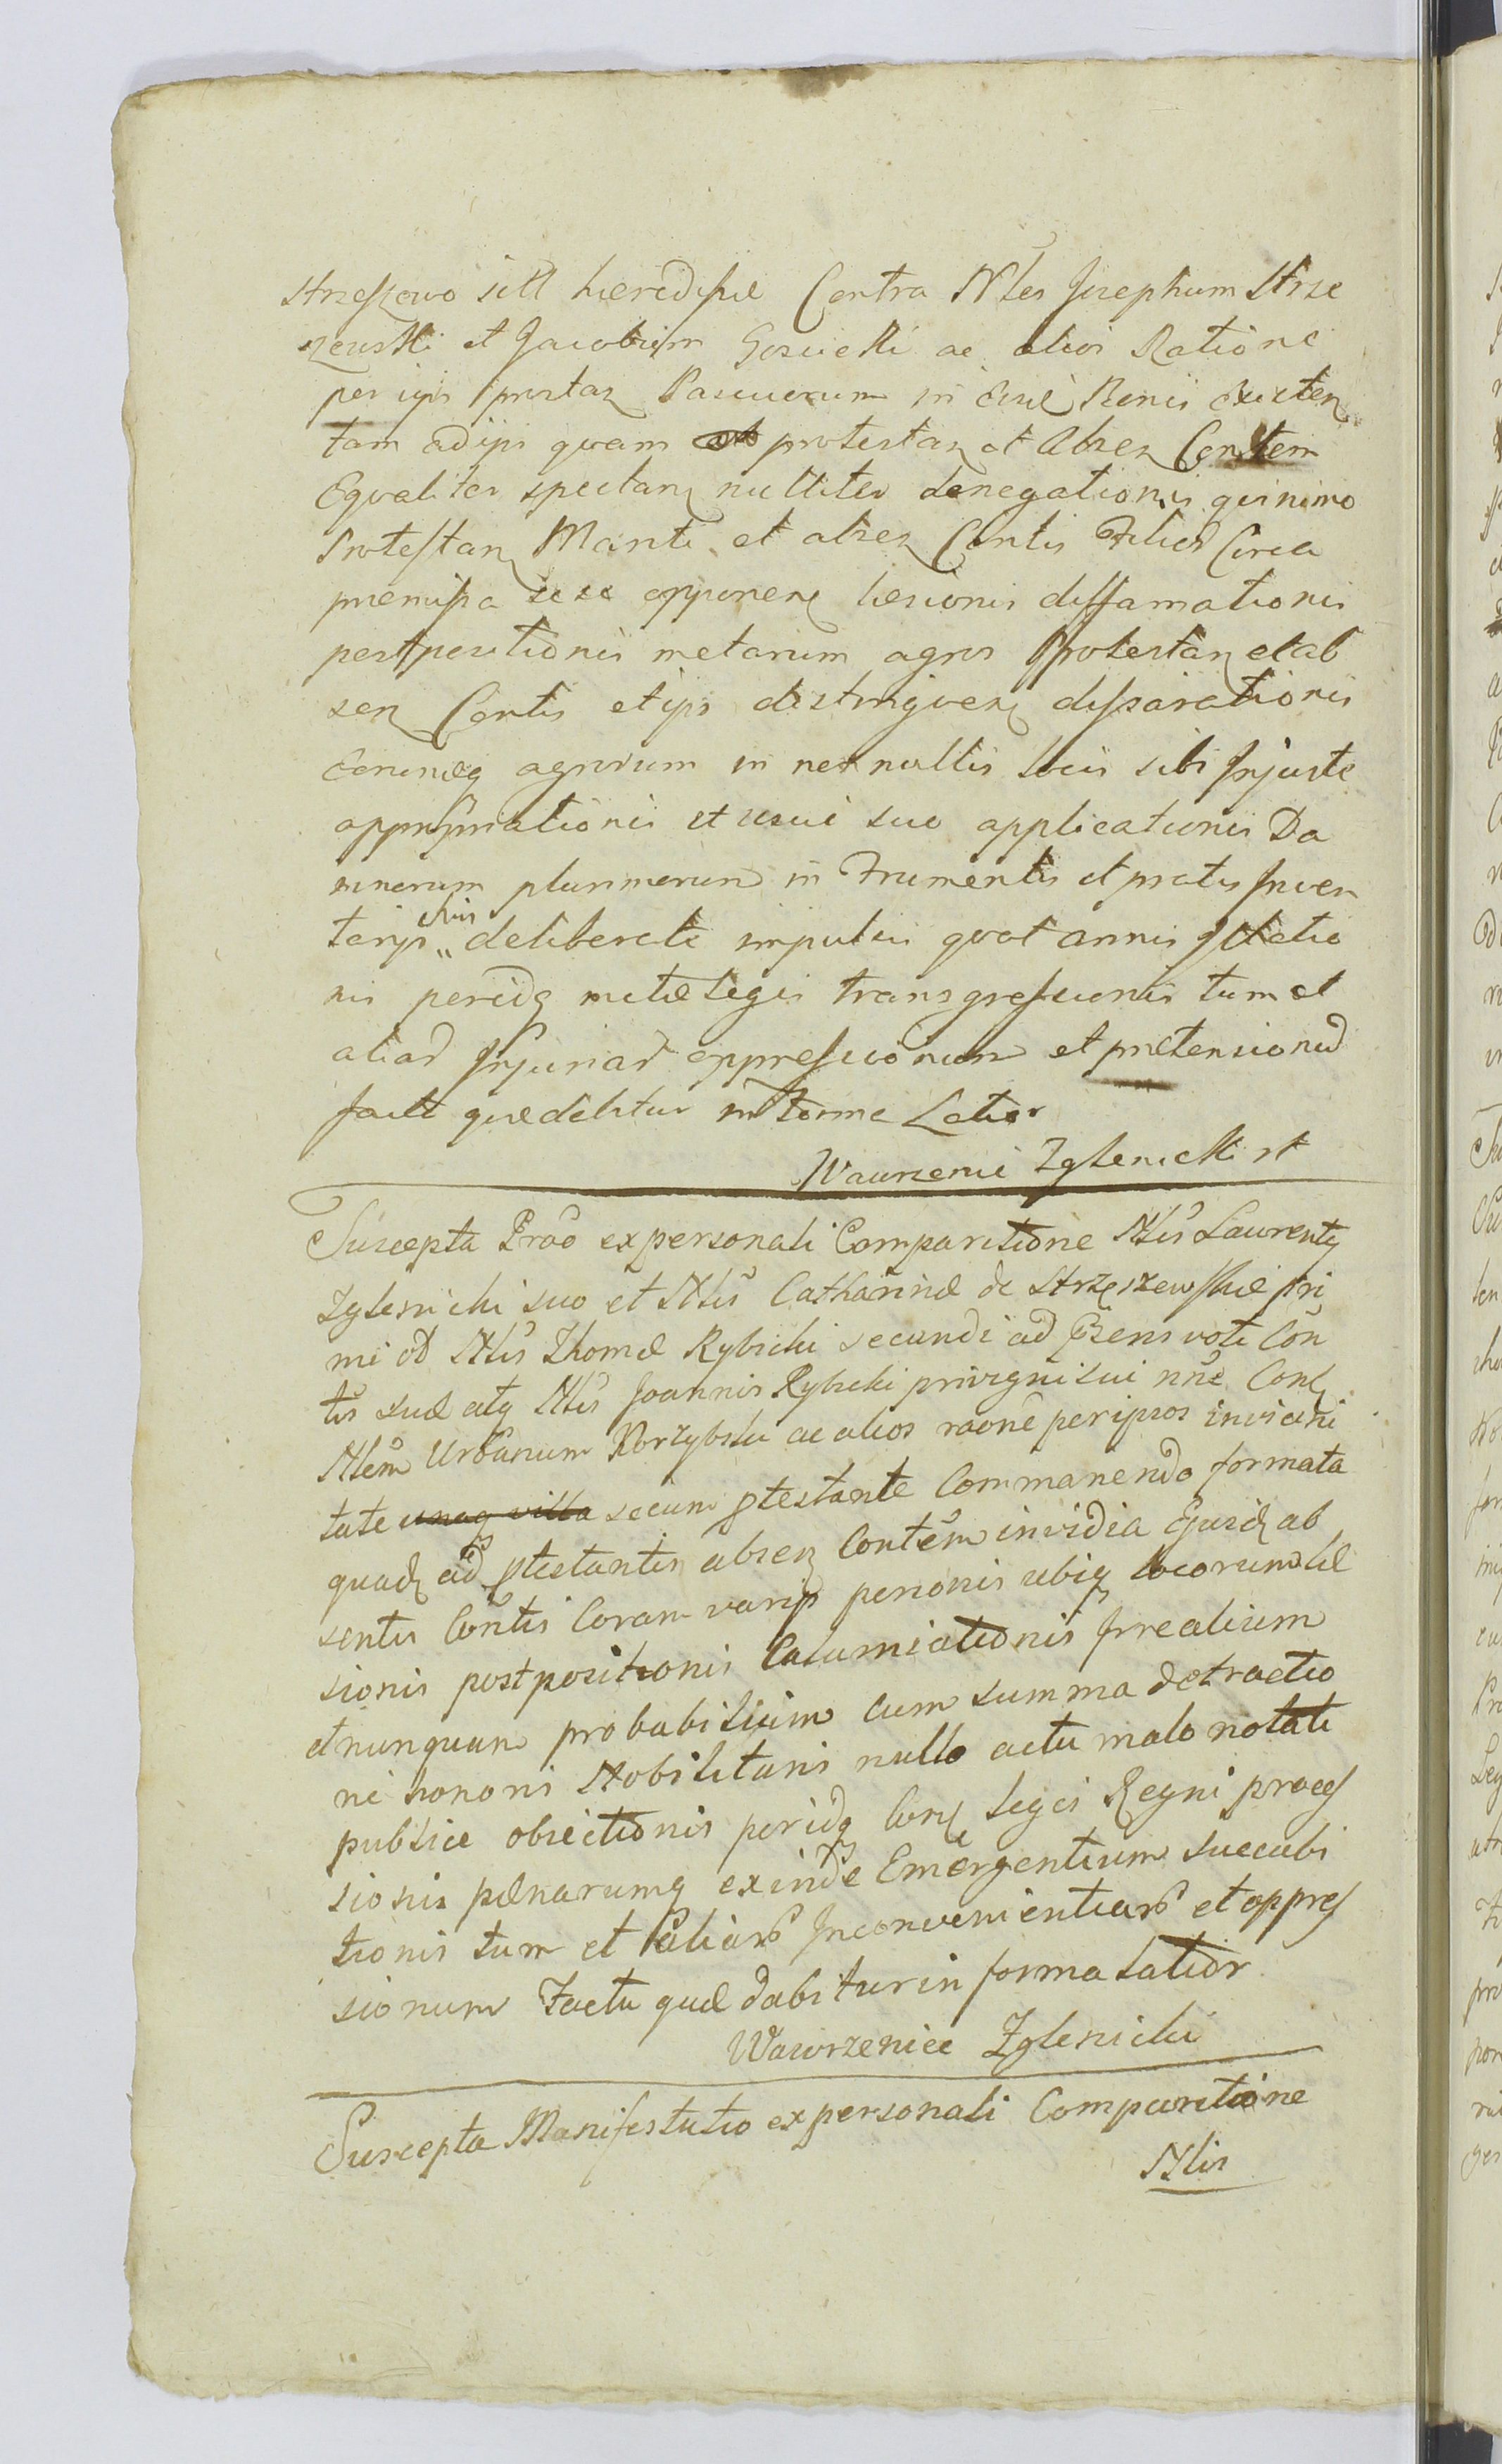 Strzeszewo sitt hæredissæ Contra Nles Josephum Strze
zewski et Jacobum Gosicki ac alios Ratione
per ipsos prætax Pascuorum in Bonis existen
tam ad ipsos quam protestan et absen Contem
Equaliter spectan nulliter denegationis quinimo
Protestan Mariti et absen Contis Filios Circa
præmissa sese opponen læsionis diffamationis
postpositionis metarum agros protestan et ab
sen Contis et ipsos distinguen disparationis
eorumq agrorum in non nullis locis sibi Injuste
appropriationis et usui suo applicationis Da
mnorum plurimorum in Frumentis et pratis Inven
tarijs deliberate impulsis quot annis Illatio
nis peridq metæ legis transgressionis tum et
aliar Injuriar oppressionum et prætensionū
facit quæ dabitur in Forma Latior
Wawrzeniec Zglenicki
Suscepta Prao ex personali Comparitione Nlis Laurentij
Zglenicki suo et Nlis Catharinæ de Strzeszewskie pri
mi od Nlis Thomæ Rybicki secundi ad Præsens voti Con
tis suæ atq Nlis Joannis Rybicki privigni sui nne Con
Nlem Urbanum Korzybski ac alios raone per ipsos in vicini
tate unaq villa secum ptestante Commanendo formata
quad ad ptestantis absen Contem invidia Ejusd ab
sentis Contis Coram varijs personis ubiq locorum læ
sionis postpositionis Calumniationis Irrealium
et nunquam probabilium cum summa detractio
ne honoris Nobilitaris nullo actu malo notati
publice obiectionis peridq Con legis Regni proces
sionis pænarumq exinde Emergentium succubi
tionis tum et aliar Inconvenientiar et oppres
sionum Factu quæ dabitur in forma latior
Wawrzeniec Zglenicki
Suscepta Manifestatio ex personali Comparitione
Nlis